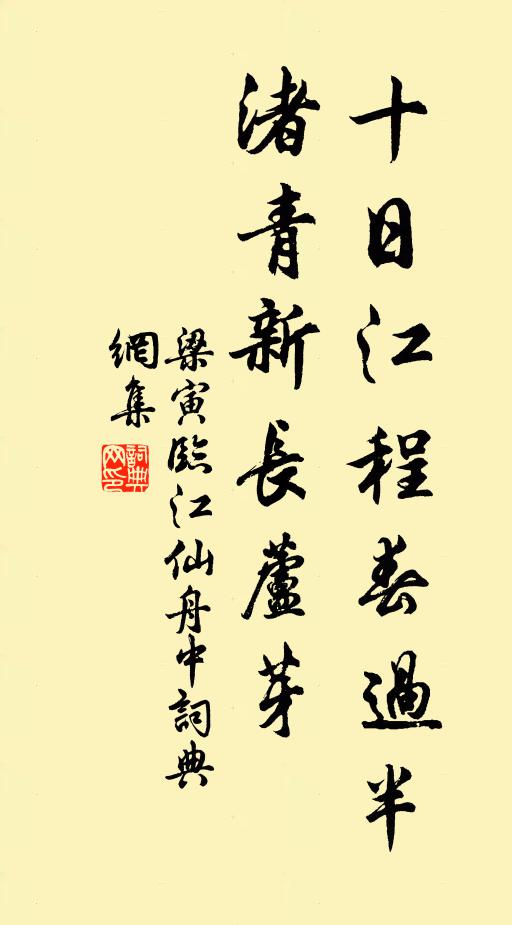 十日江程春過半
渚青新長蘆芽
梁寅臨江仙舟中詞典
網集
詞典
网印